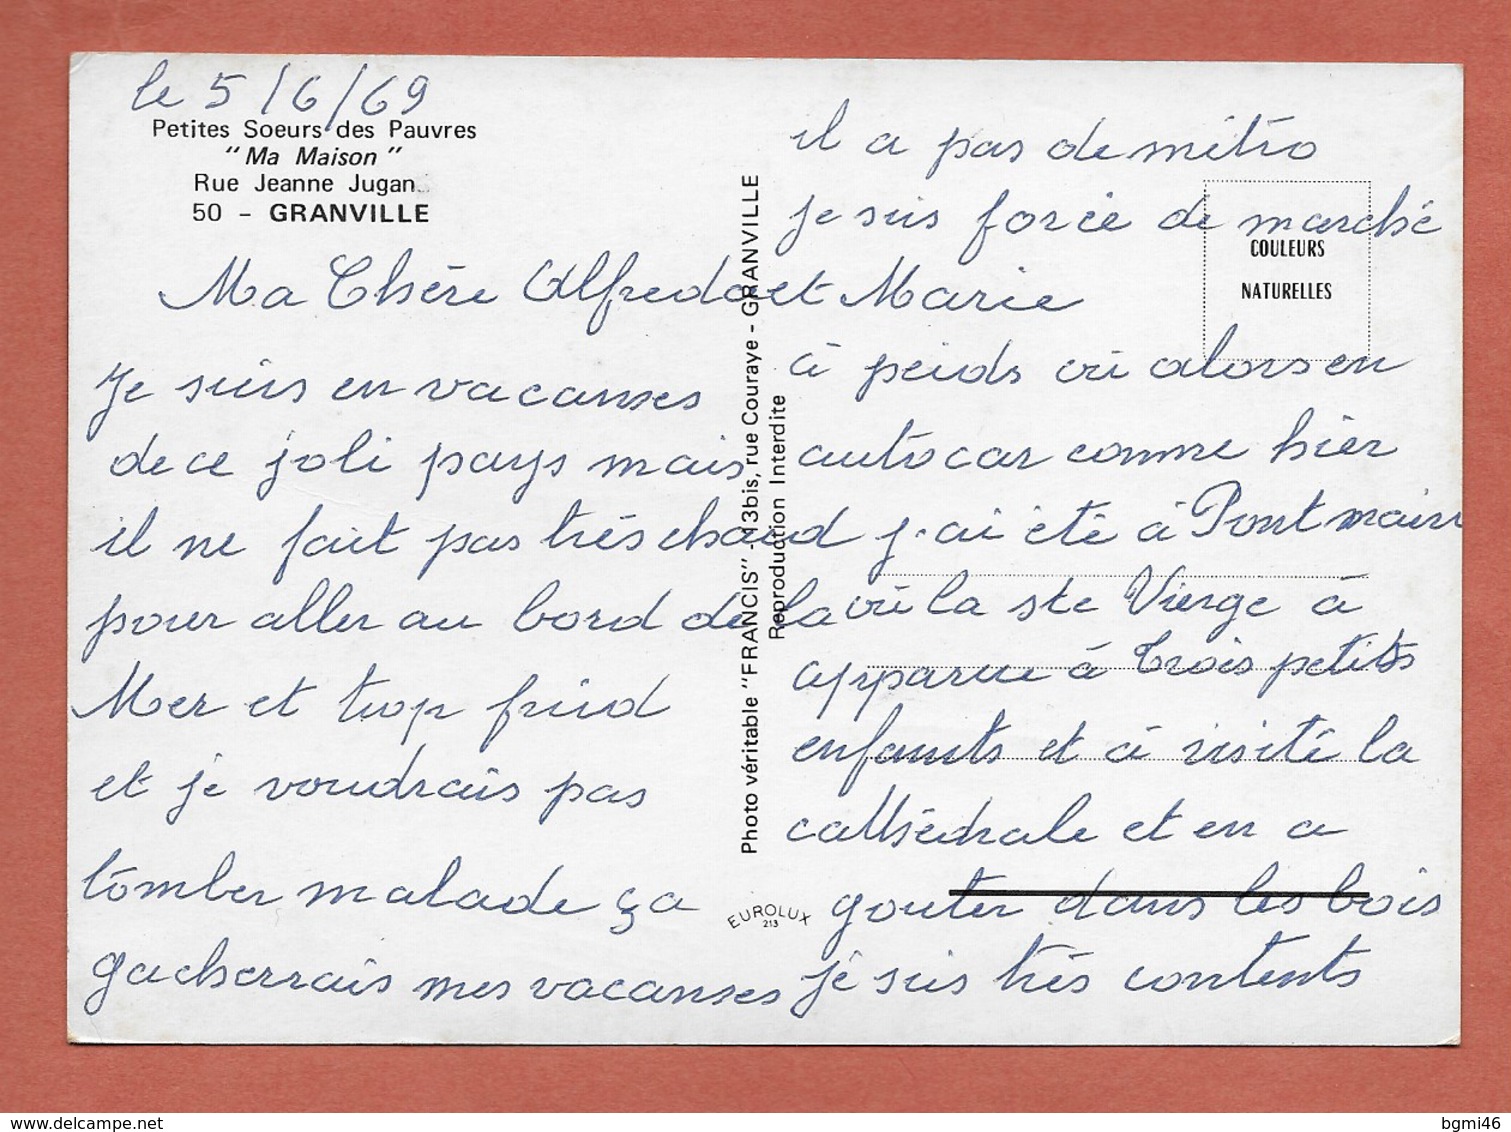 le 5/6/69
Petites Soeurs des Pauvres
"Ma Maison"
Rue Jeanne Jugan
50 - GRANVILLE
Ma Chère Alfreda et Marie
Je suis en vacanses
de ce joli pays mais
il ne fait pas très chaud
pour aller au bord de la
Mer et trop frid
et je voudrais pas
tomber malade ça
gacherrais mes vacanses
Photo véritable "FRANCIS" - 13bis, rue Couraye - GRANVILLE
Reproduction Interdite
EUROLUX
213
COULEURS
NATURELLES
il a pas de métro
je suis forcée de marché
à peids où alors en
autocar comme hier
j'ai été à Pontmain
où la ste Vierge à
apparue à trois petits
enfants et à visité la
cathédrale et en a
gouter dans les bois
je suis très contents
bgmi46